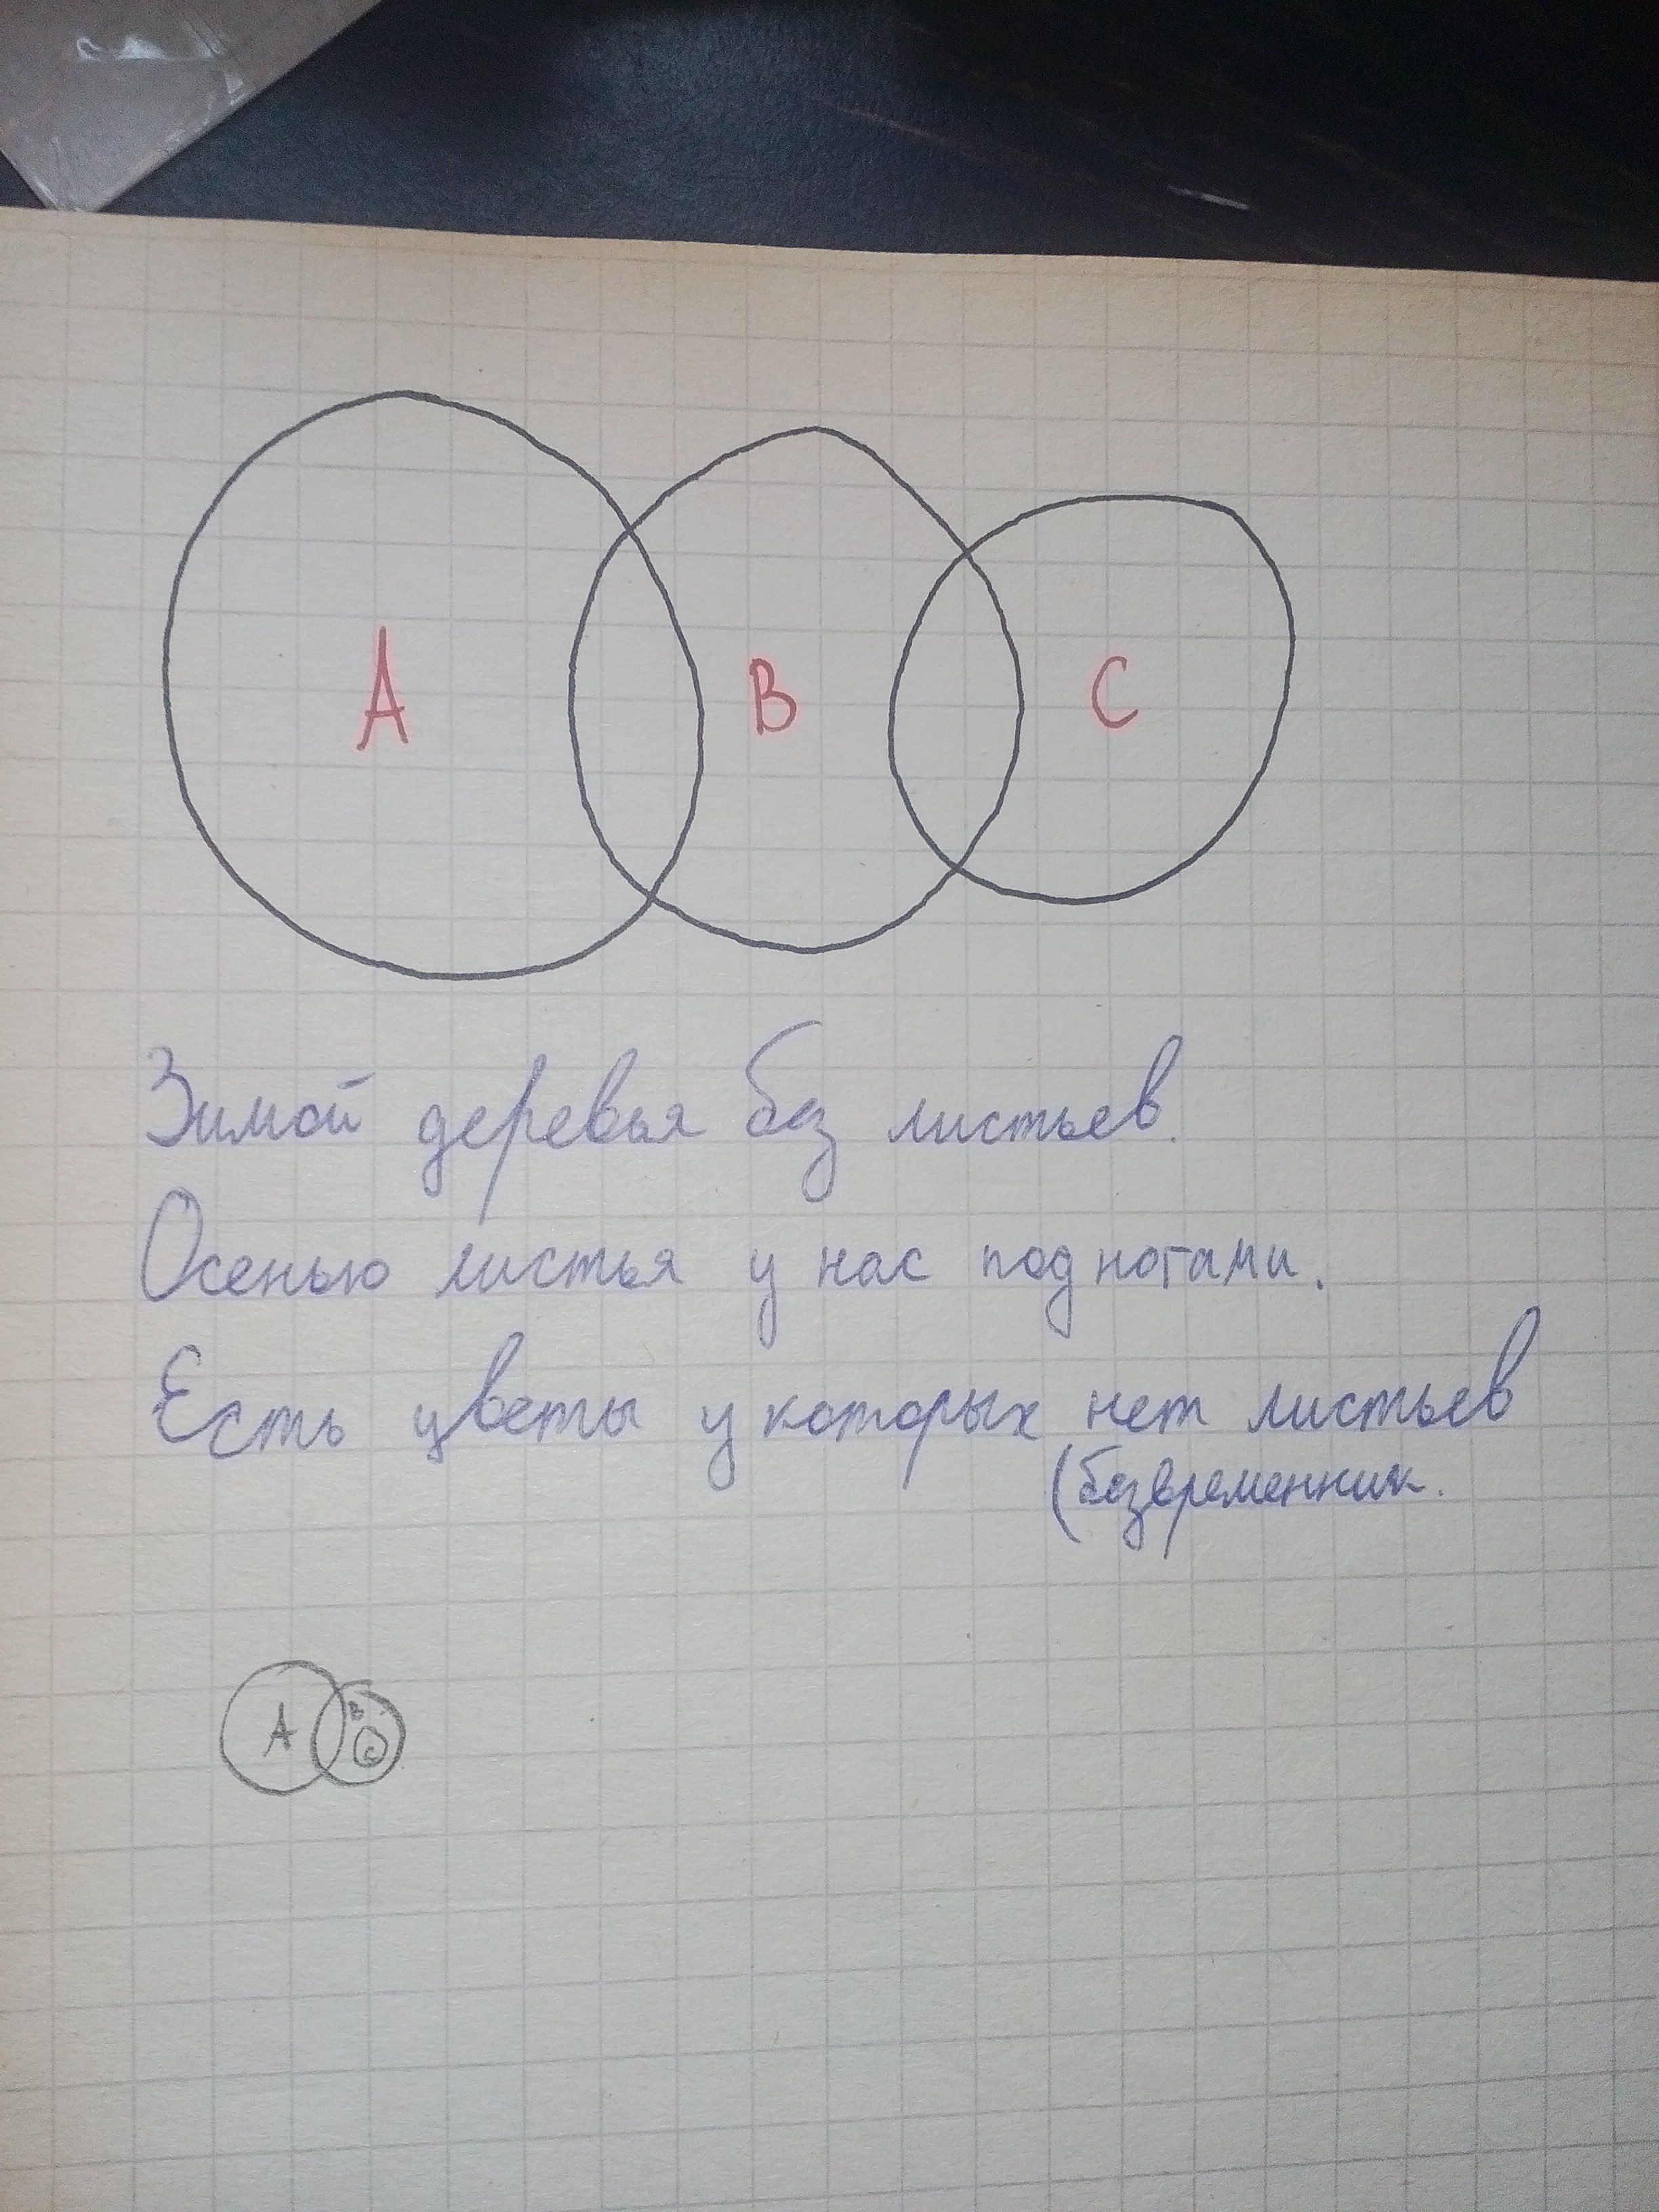 А В С
Зимой деревья без листьев.
Осенью листья у нас под ногами.
Есть цветы у которых нет листьев
(безвременник.
А В С